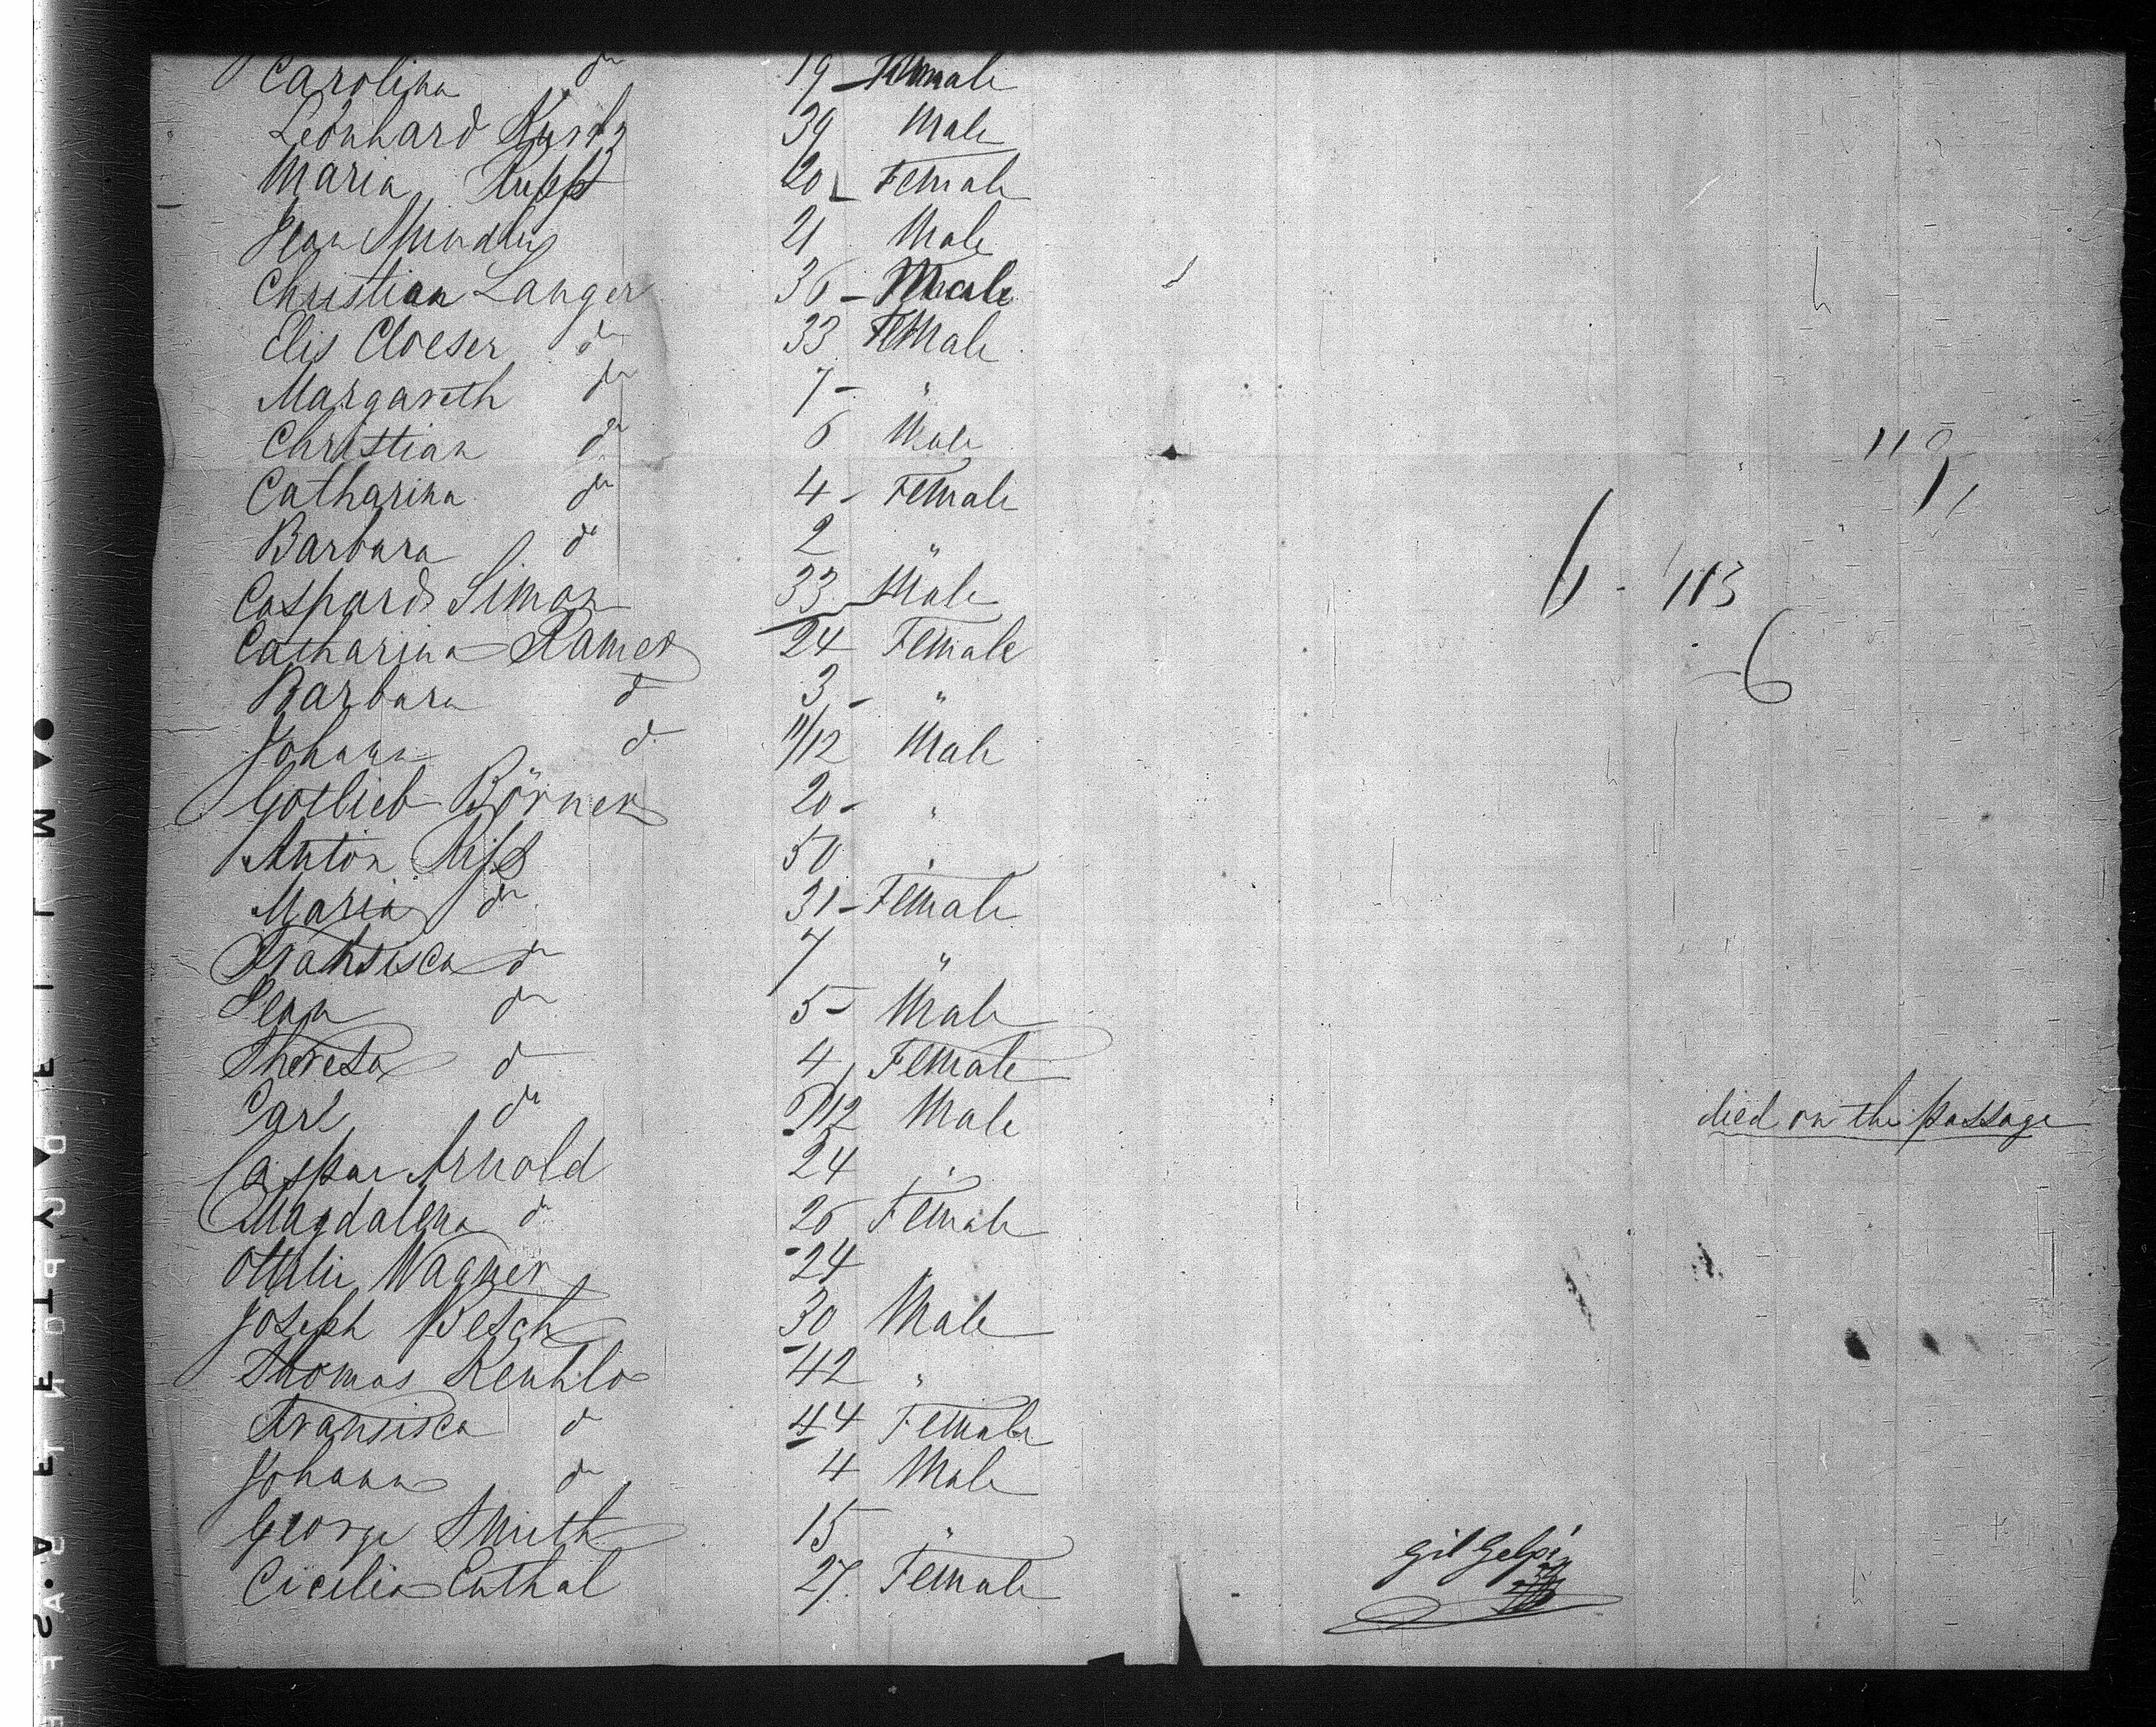 Carolina do 19 - Female
Leonhard 39 Male
Maria Rupp 20 - Female
Jean 21 Male
Christian Langer 36 - Male
Elis Cloeser do 33 Female
Margareth do 7 - "
Christian do 6 Male
119
Catharina do 4 - Female
Barbara do 2 "
Caspard Simon 33 Male
113
Catharina Ramer 24 Female
6
Barbara do 3 - "
Johann do 11/12 Male
Gotlieb Börner 20 - "
Anton 50 "
Maria do 31 - Female
Fransisca do 7 "
Jean do 5 - Male
Theresa do 4 Female
Carl do 6/12 Male died on the passage
Caspar Arnold 24 "
Magdalena do 26 Female
Ottilie Wagner 24 "
Joseph Besch 30 Male
Thomas 42 "
Fransisca do 44 Female
Johann do 4 Male
George Smith 15 "
Cicilia Enthal 27. Female
Gil Gelpi